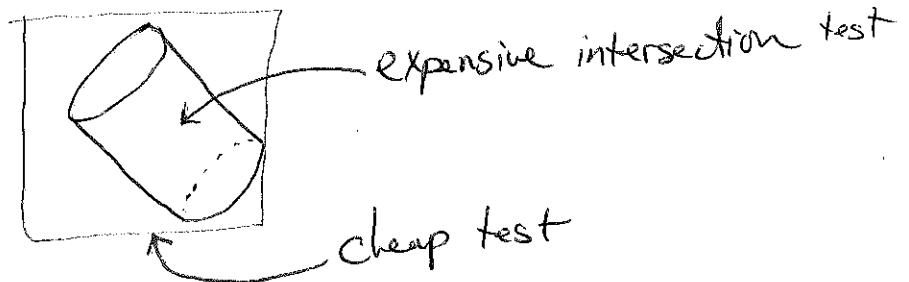 expensive intersection test
cheap test